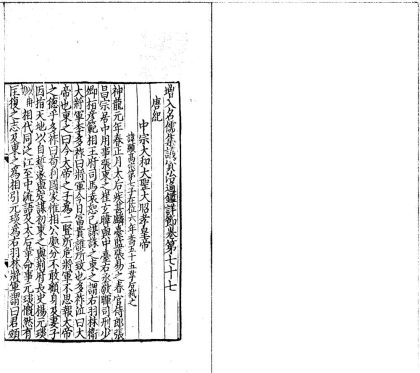 增入名儒集議資治通鑑詳節卷第七十七
唐紀
中宗大和大聖大昭孝皇帝
諱顯高宗第七子在位六年壽五十五葬
神龍元年春正月太后疾甚麟臺監張易之春官侍郎張
昌宗居中用事張柬之崔玄暐與中臺右丞敬暉司刑少
卿桓彥範相王府司馬袁恕己謀誅之柬之謂右羽林衛
大將軍李多祚曰將軍今日富貴誰所致也多祚泣曰大
帝也柬之曰今大帝之子為二豎所危將軍不思報大帝
之德乎多祚曰苟利國家惟相公處分不敢顧身及妻子
因指天地以自誓遂與定謀初柬之與荊府長史楊元琰
相代同泛江至中流語及太后革命事元琰慨然有
匡復之志及柬之為相引元琰為右羽林將軍謂曰君頗